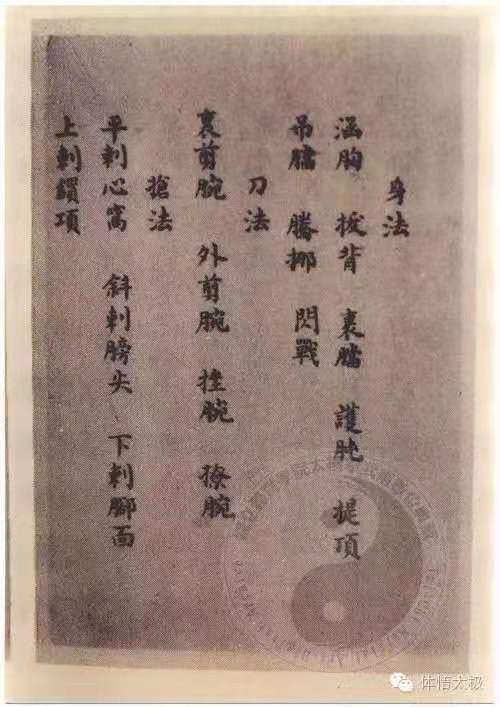 身法
涵胸 拔背 裹襠 護肫 提項
吊襠 騰挪 閃戰
刀法
裏剪腕 外剪腕 挫腕 撩腕
搶法
平刺心窩 斜刺膀尖 下刺腳面
上刺鎖項
体悟太极